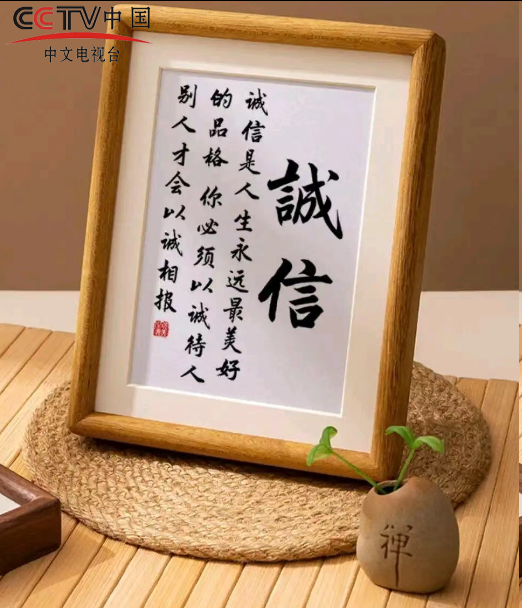 CCTV中国
中文电视台
誠信
诚信是人生永远最美好
的品格 你必须以诚待人
别人才会以诚相报
禅